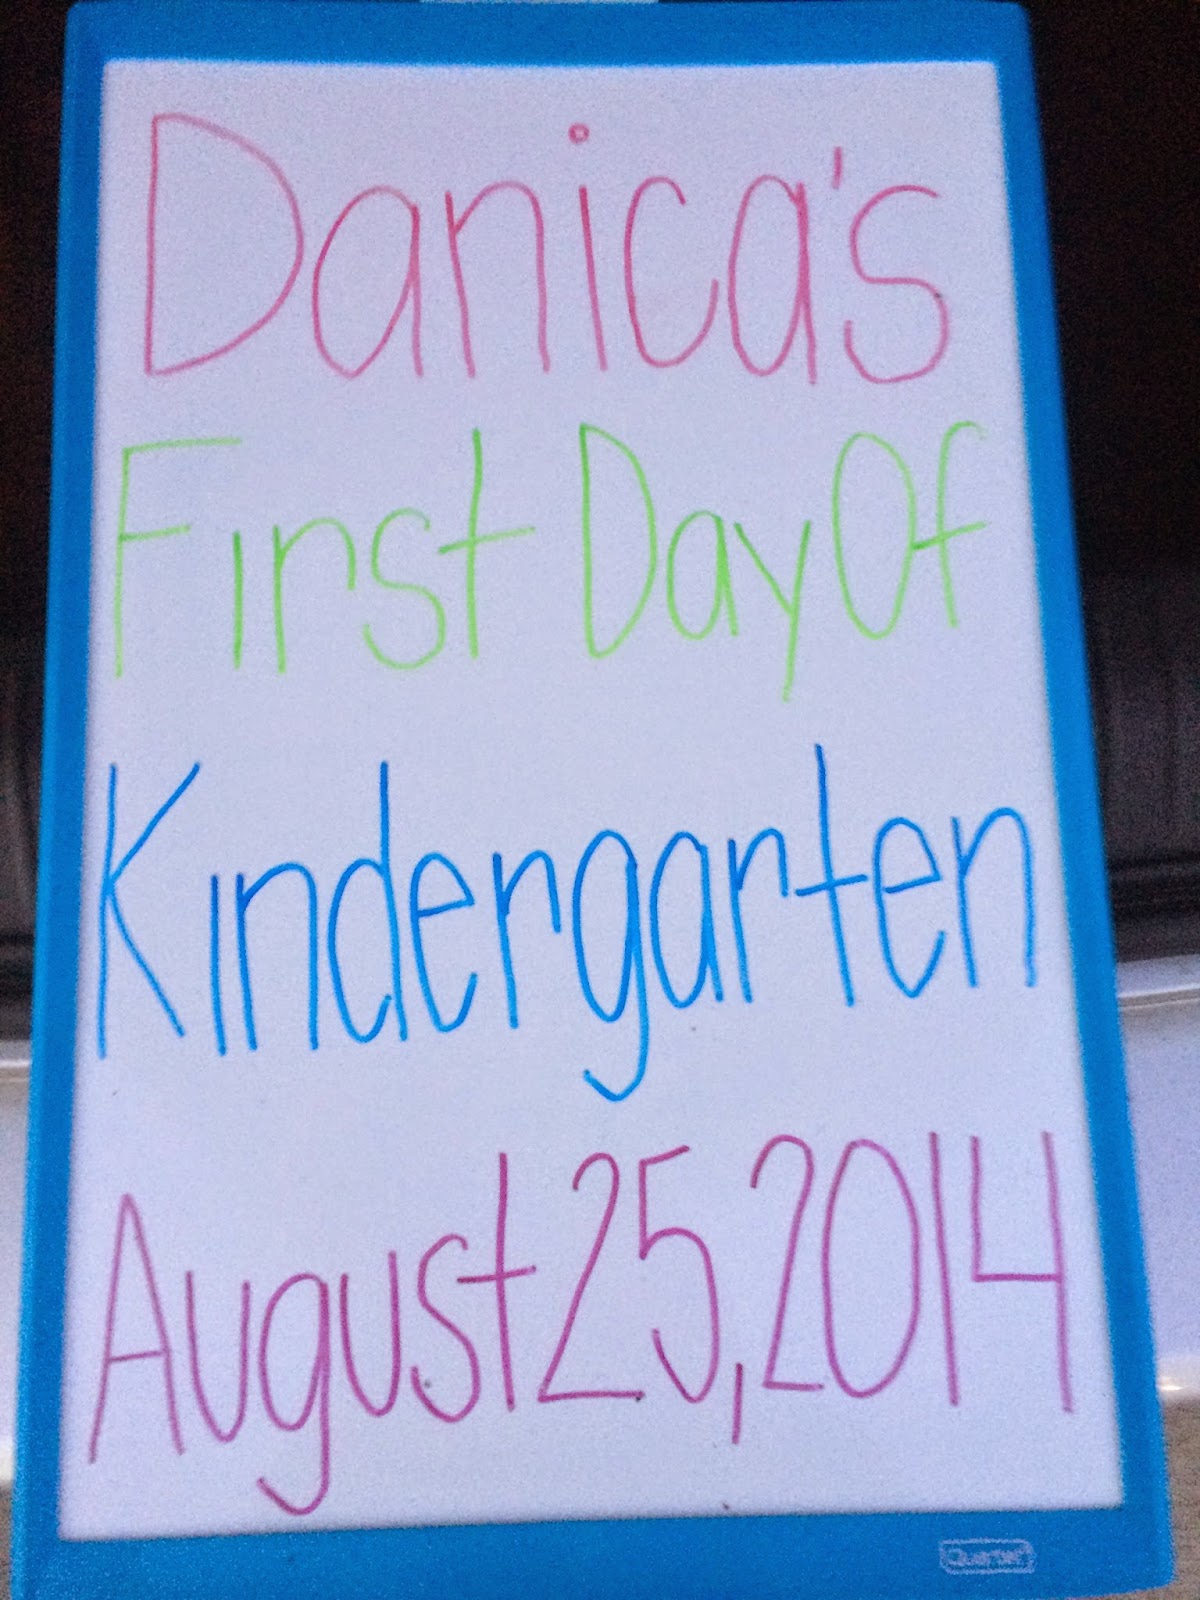 Danica's
First Day Of
Kindergarten
August 25, 2014
Quartet